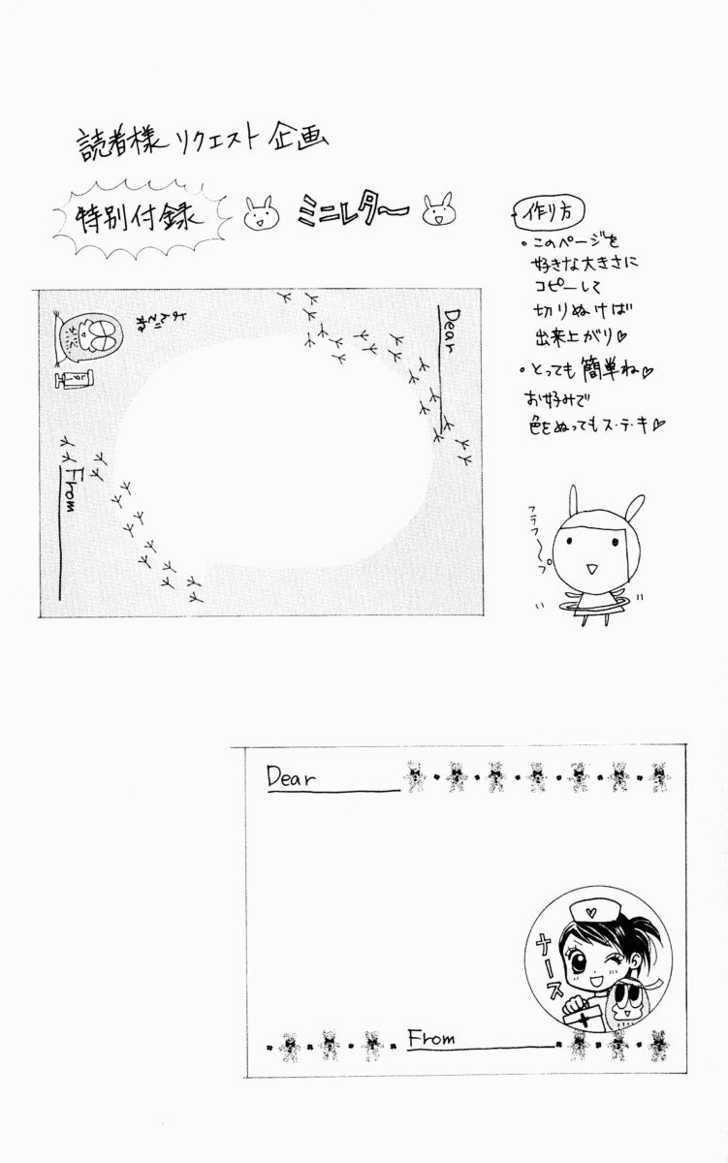 読者様リクエスト企画
特別付録
ミニレター
作り方
・このページを
好きな大きさに
コピーして
切りぬけば
出来上がり♡
・とっても簡単ね♡
お好みで
色をぬってもス・テ・キ♡
Dear
From
フラフ〜プ
Dear
ナース
From